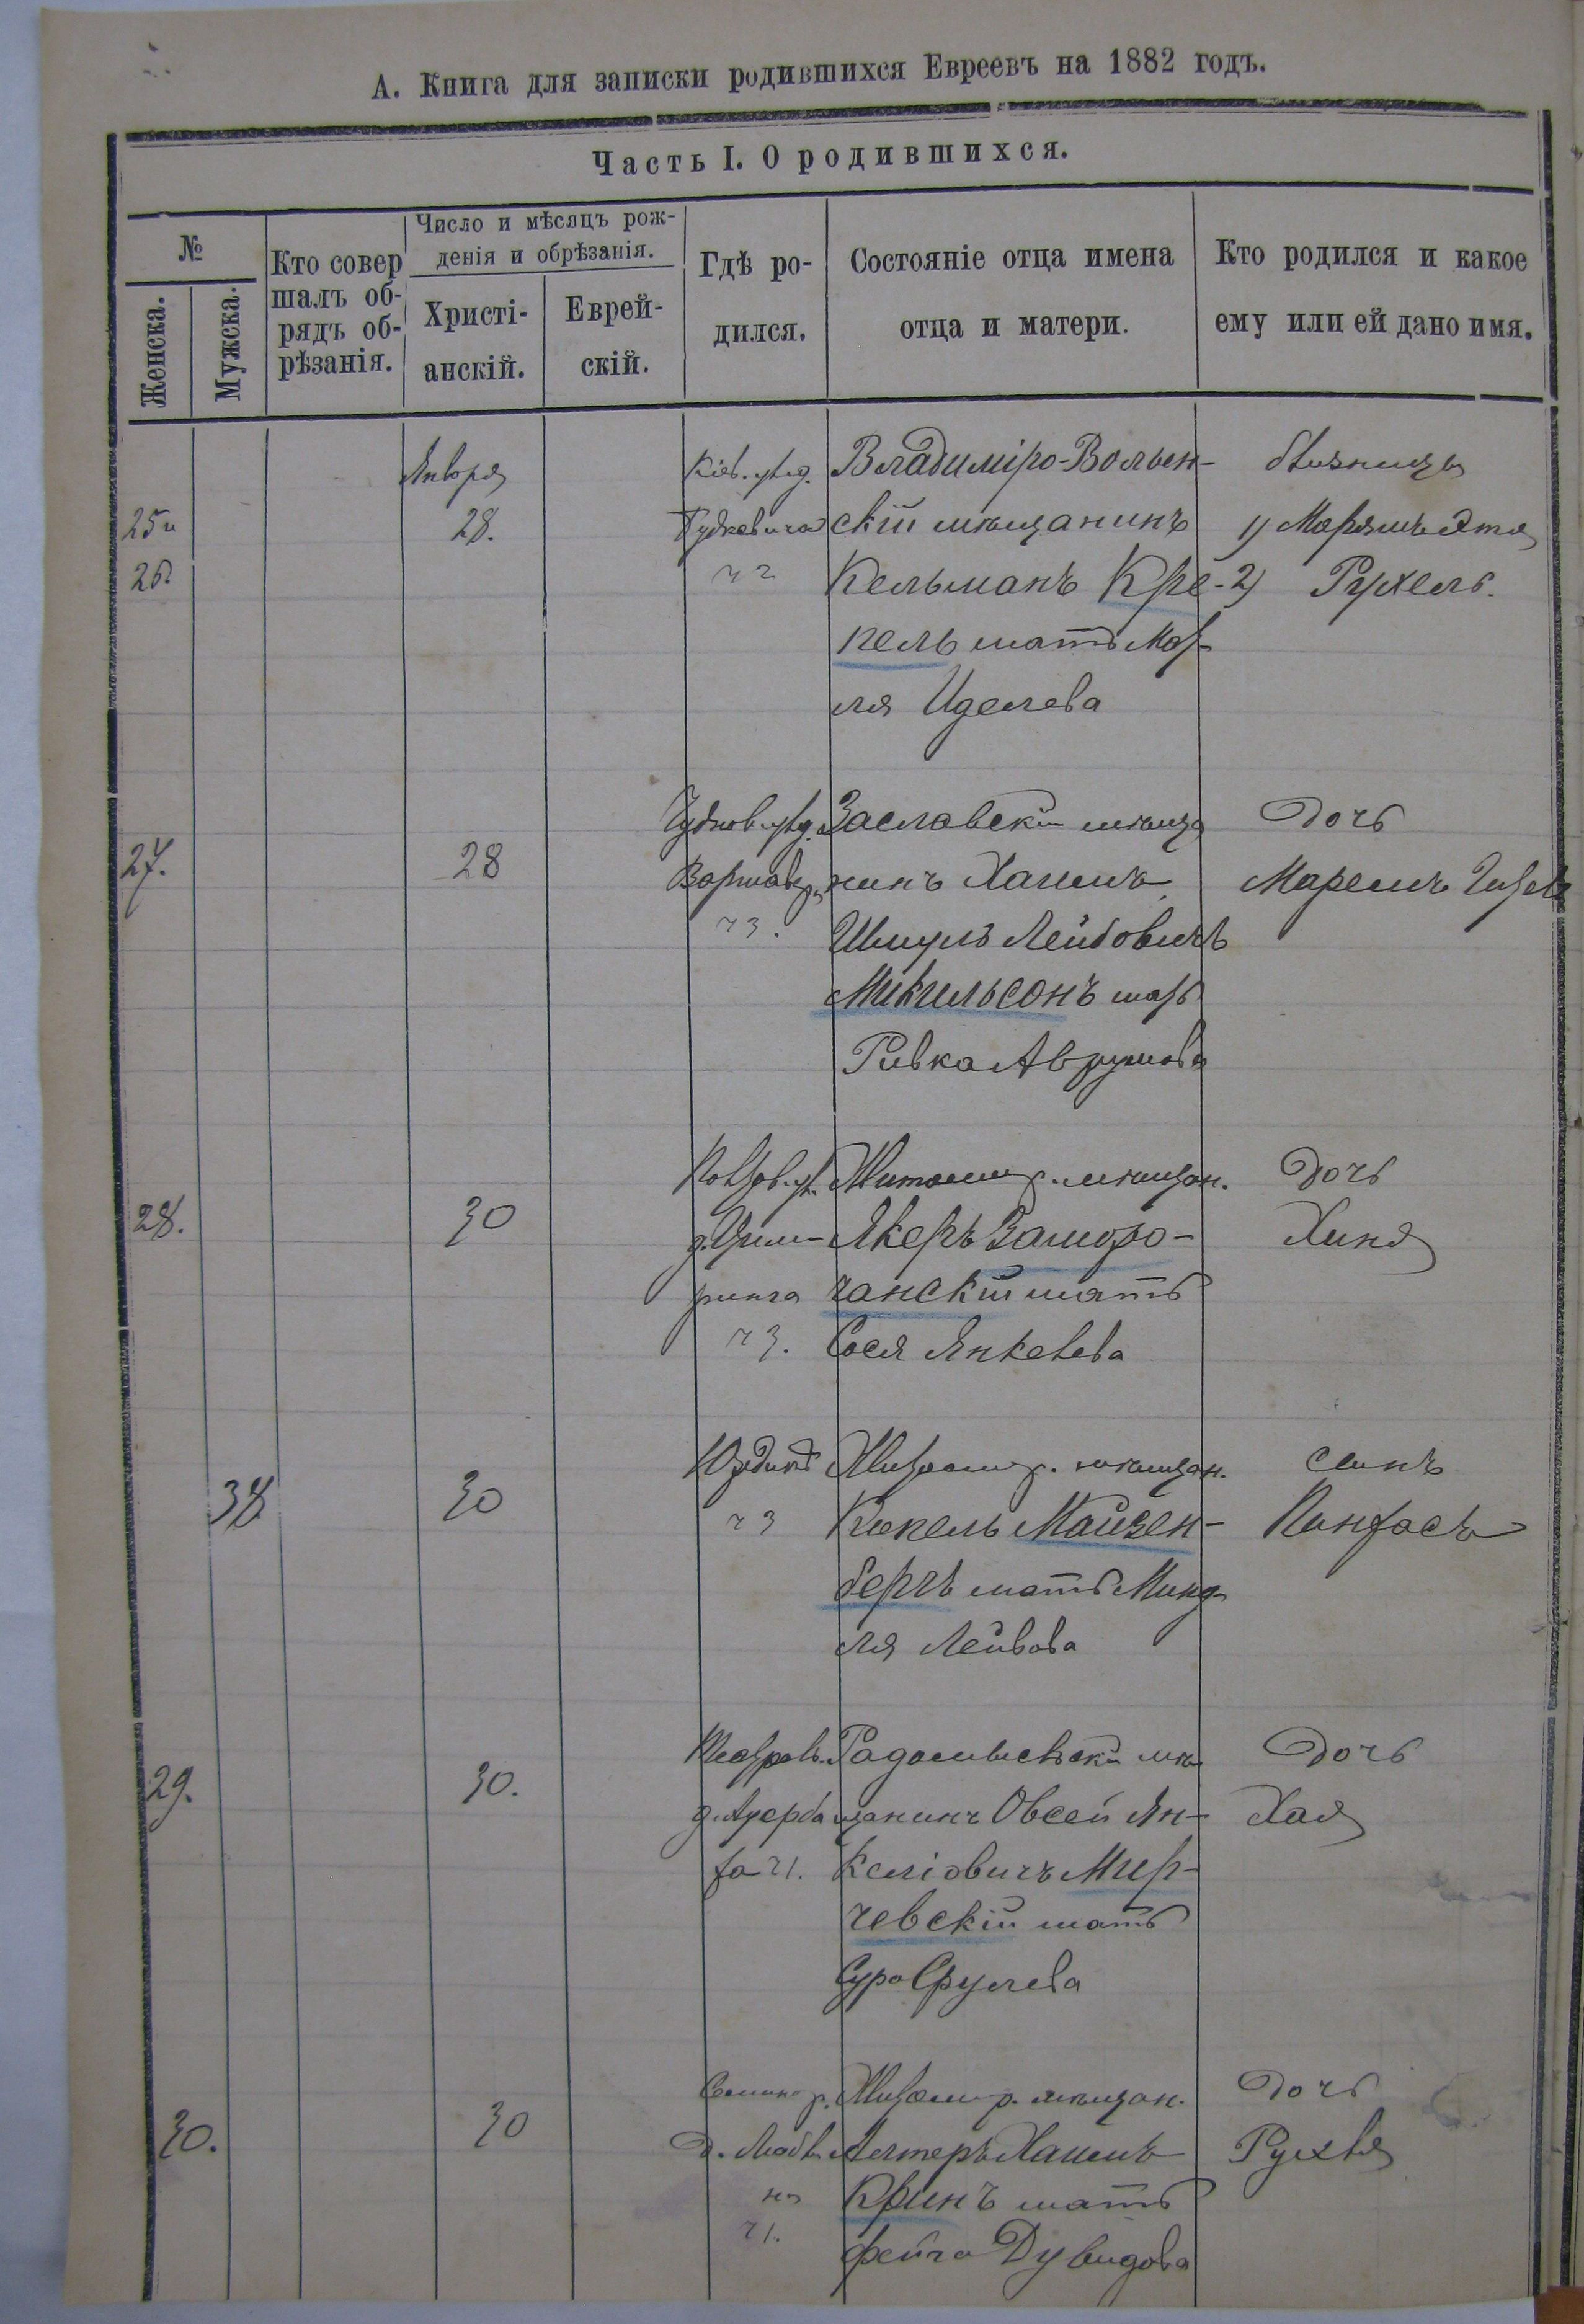 А. Книга для записки родившихся Евреевъ на 1882 годъ.
Часть I. О родившихся.
№
Женска.
Мужска.
Кто совер
шалъ об-
рядъ об-
рѣзанія.
Число и мѣсяцъ рож-
денія и обрѣзанія.
Христі-
анскій.
Еврей-
скій.
Гдѣ ро-
дился.
Состояніе отца имена
отца и матери.
Кто родился и какое
ему или ей дано имя.
25 и
26.
Января
28.
Кіев.
ч 2
Владиміро-Волын-
скій мѣщанинъ
Кельманъ Кре-
пель мать
ля Иделева
близнецы
1) Марямъ Этя
2) Рухель.
27.
28
ч 3.
Заславскій мѣща
нинъ Хаимъ
Шмуль Лейбовичъ
Микильсонъ мать
Ривка Аврумова
Дочь
Маремъ
28.
30
ч 3.
Житомир. мѣщан.
Якеръ
чанскій мать
Сося Янкелева
Дочь
Хиня
38
30
ч 3
Житомир. мѣщан.
Кисель Майзен-
бергъ мать Минд-
ля Лейбова
сынъ
Пинхасъ
29.
30.
д. Ауерба
ха ч 1.
Радомысльскій мѣ
щанинъ Овсей Ян-
келіовичъ Мир-
чевскій мать
Сура Срулева
Дочь
Хая
30.
30
ч 1.
Житомир. мѣщан.
Алтеръ Хаимъ
Кринъ мать
Фейга Дувидова
Дочь
Рухля